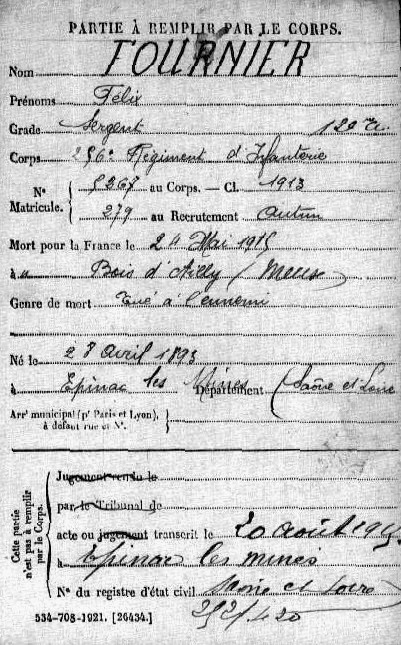 PARTIE À REMPLIR PAR LE CORPS.
Nom FOURNIER
Prénoms Félix
Grade Sergent
Corps 256e Régiment d'Infanterie
N° Matricule. 5267 au Corps. — Cl. 1913
279 au Recrutement Autun
Mort pour la France le 24 Mai 1915
à Bois d'Ailly / Meuse
Genre de mort Tué à l'ennemi
Né le 28 Avril 1893
à Epinac les Mines Département Saône et Loire
Arrt municipal (pr Paris et Lyon), à défaut rue et N°.
Cette partie n'est pas à remplir par le Corps.
Jugement rendu le
par le Tribunal de
acte ou jugement transcrit le 20 août 1915
à Epinac les mines
N° du registre d'état civil Saône et Loire
534-708-1921. [26434.]